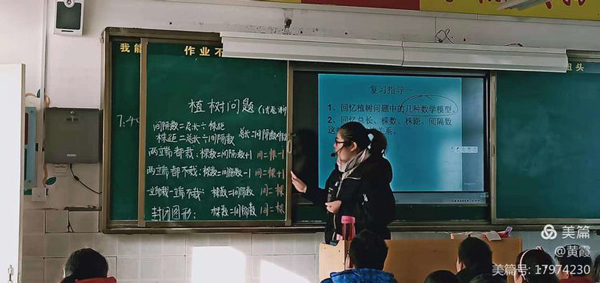 我能
作业不
植树问题
间隔数=总长÷株距
株距=总长÷间隔数
两端都栽：棵数=间隔数+1 间=棵-1
两端都不栽：棵数=间隔数-1 间=棵+1
一端栽一端不栽：棵数=间隔数 间=棵
封闭图形：棵数=间隔数 间=棵
复习指导一
1、回忆植树问题中的几种数学模型。
2、回忆总长、棵数、株距、间隔数
关系。
美篇
@黄霞
美篇号: 17974230